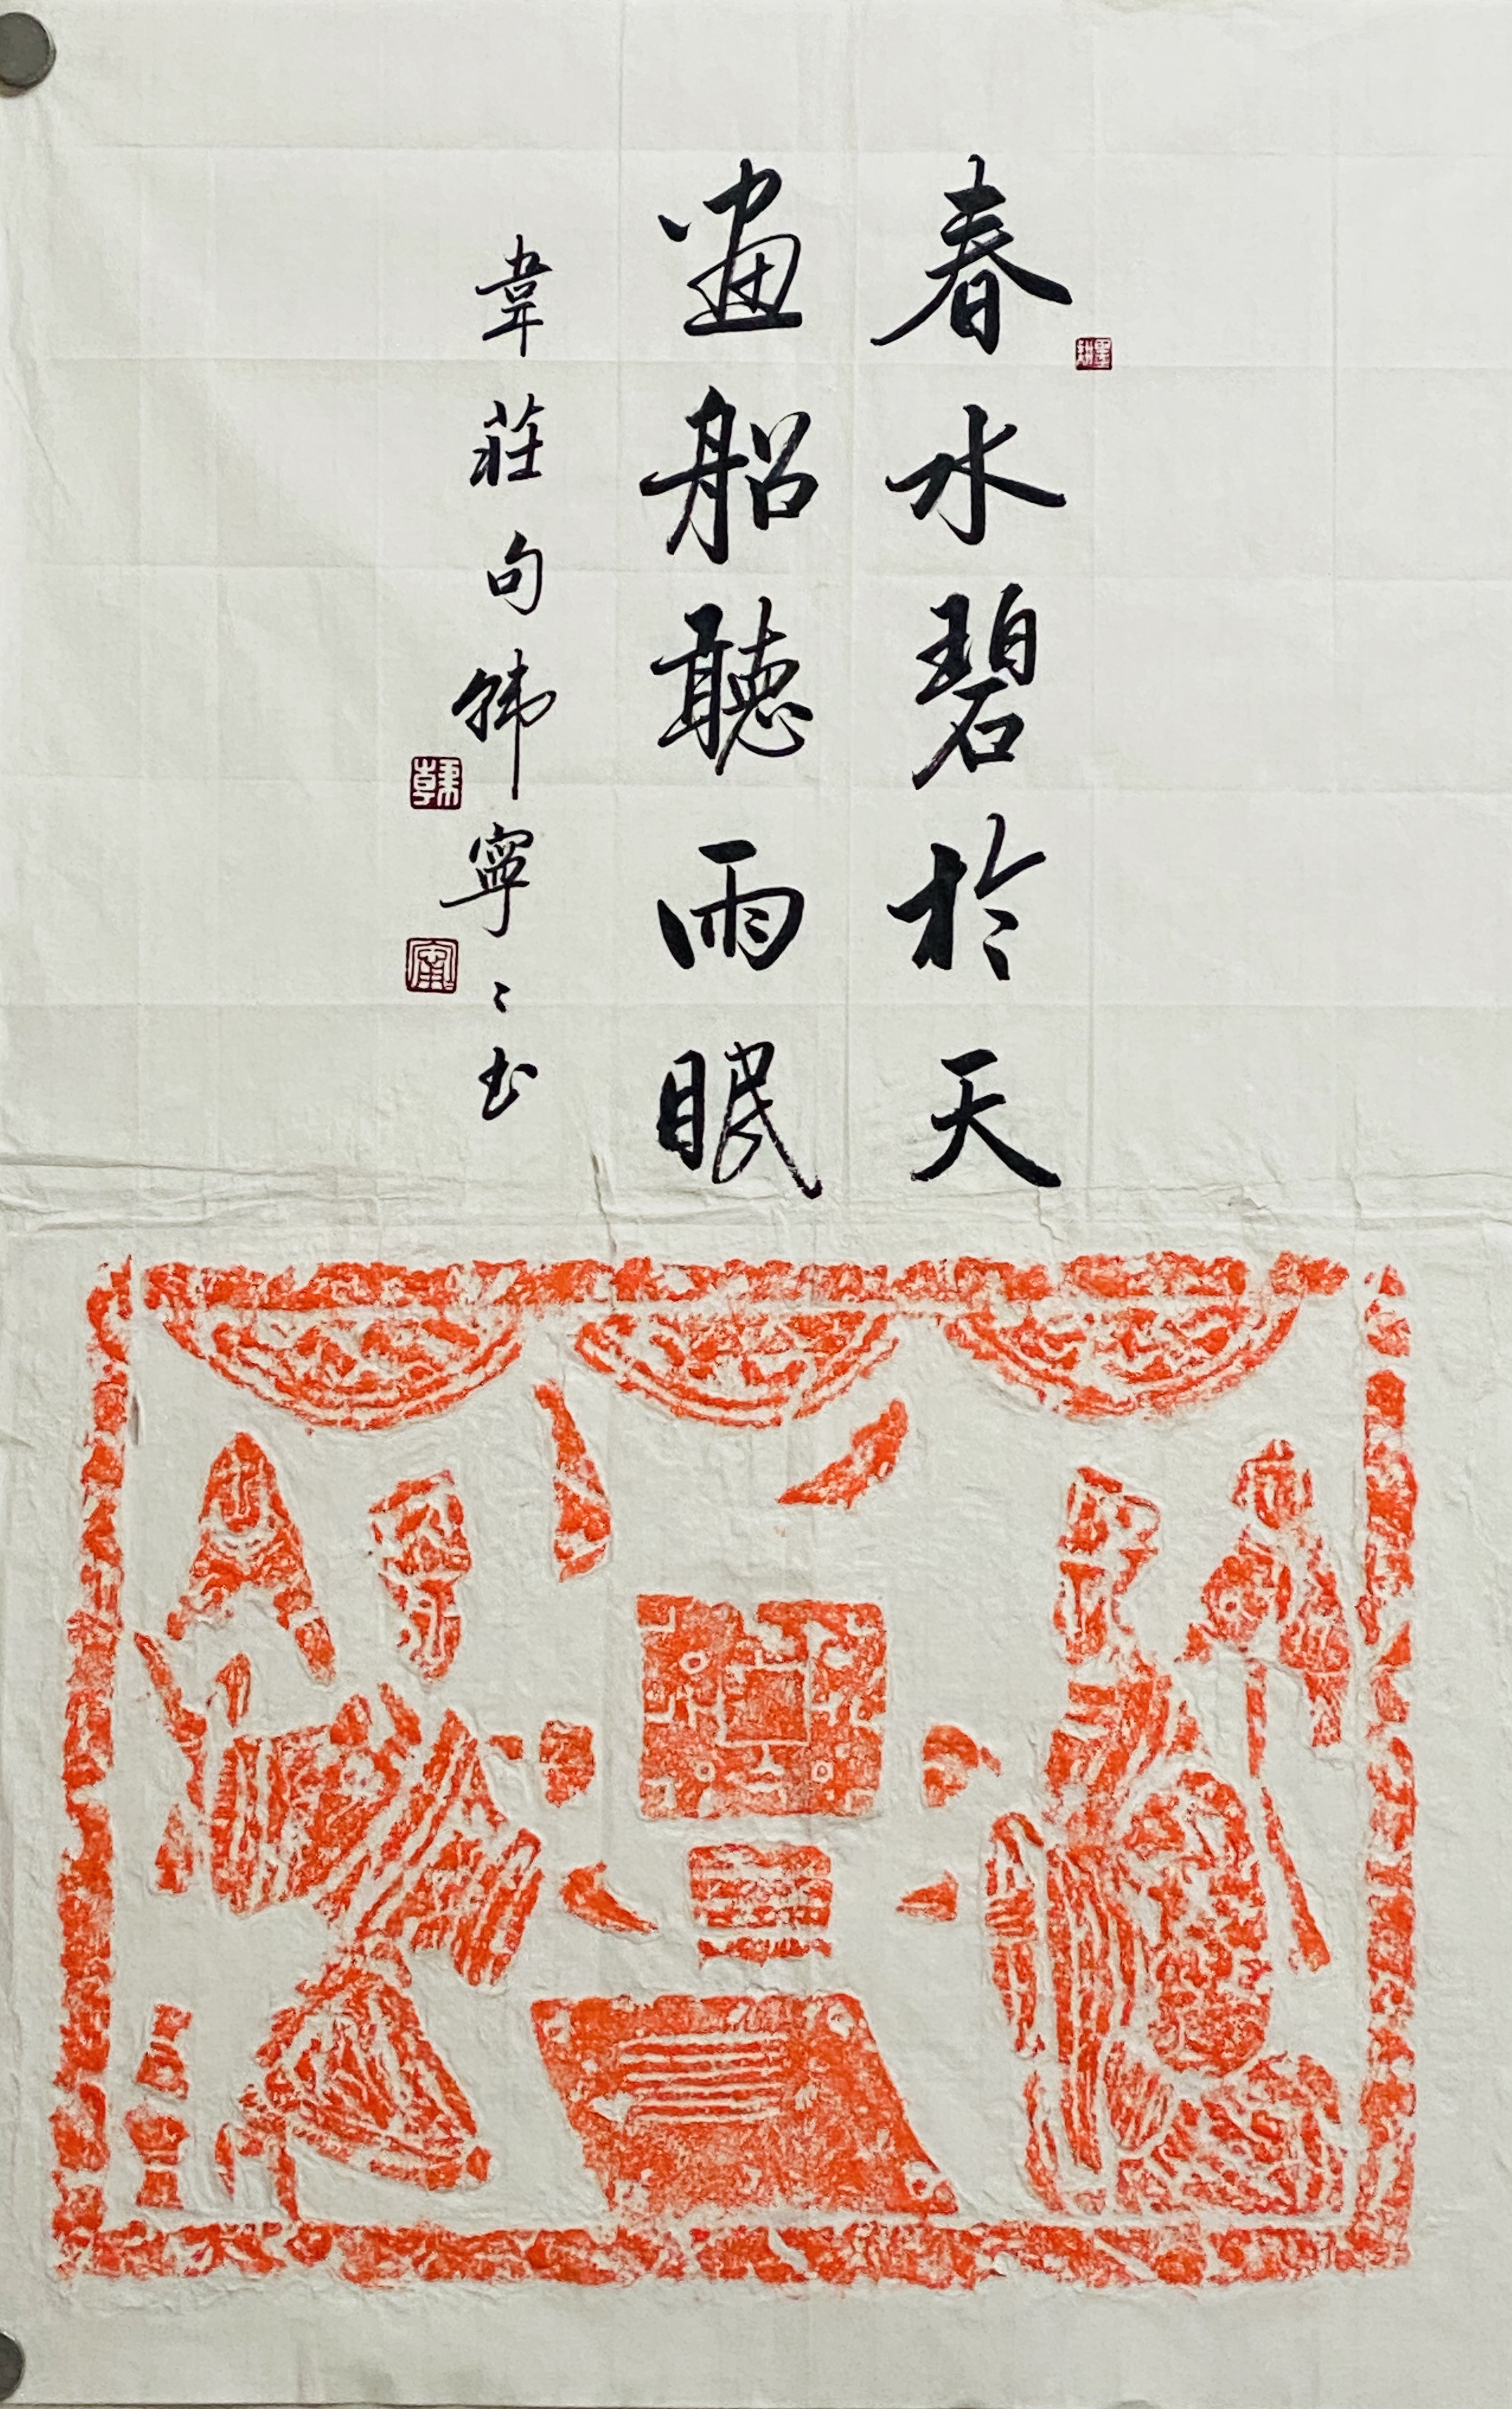 春水碧於天
畫船聽雨眠
韋莊句韩寧寧書
墨耕